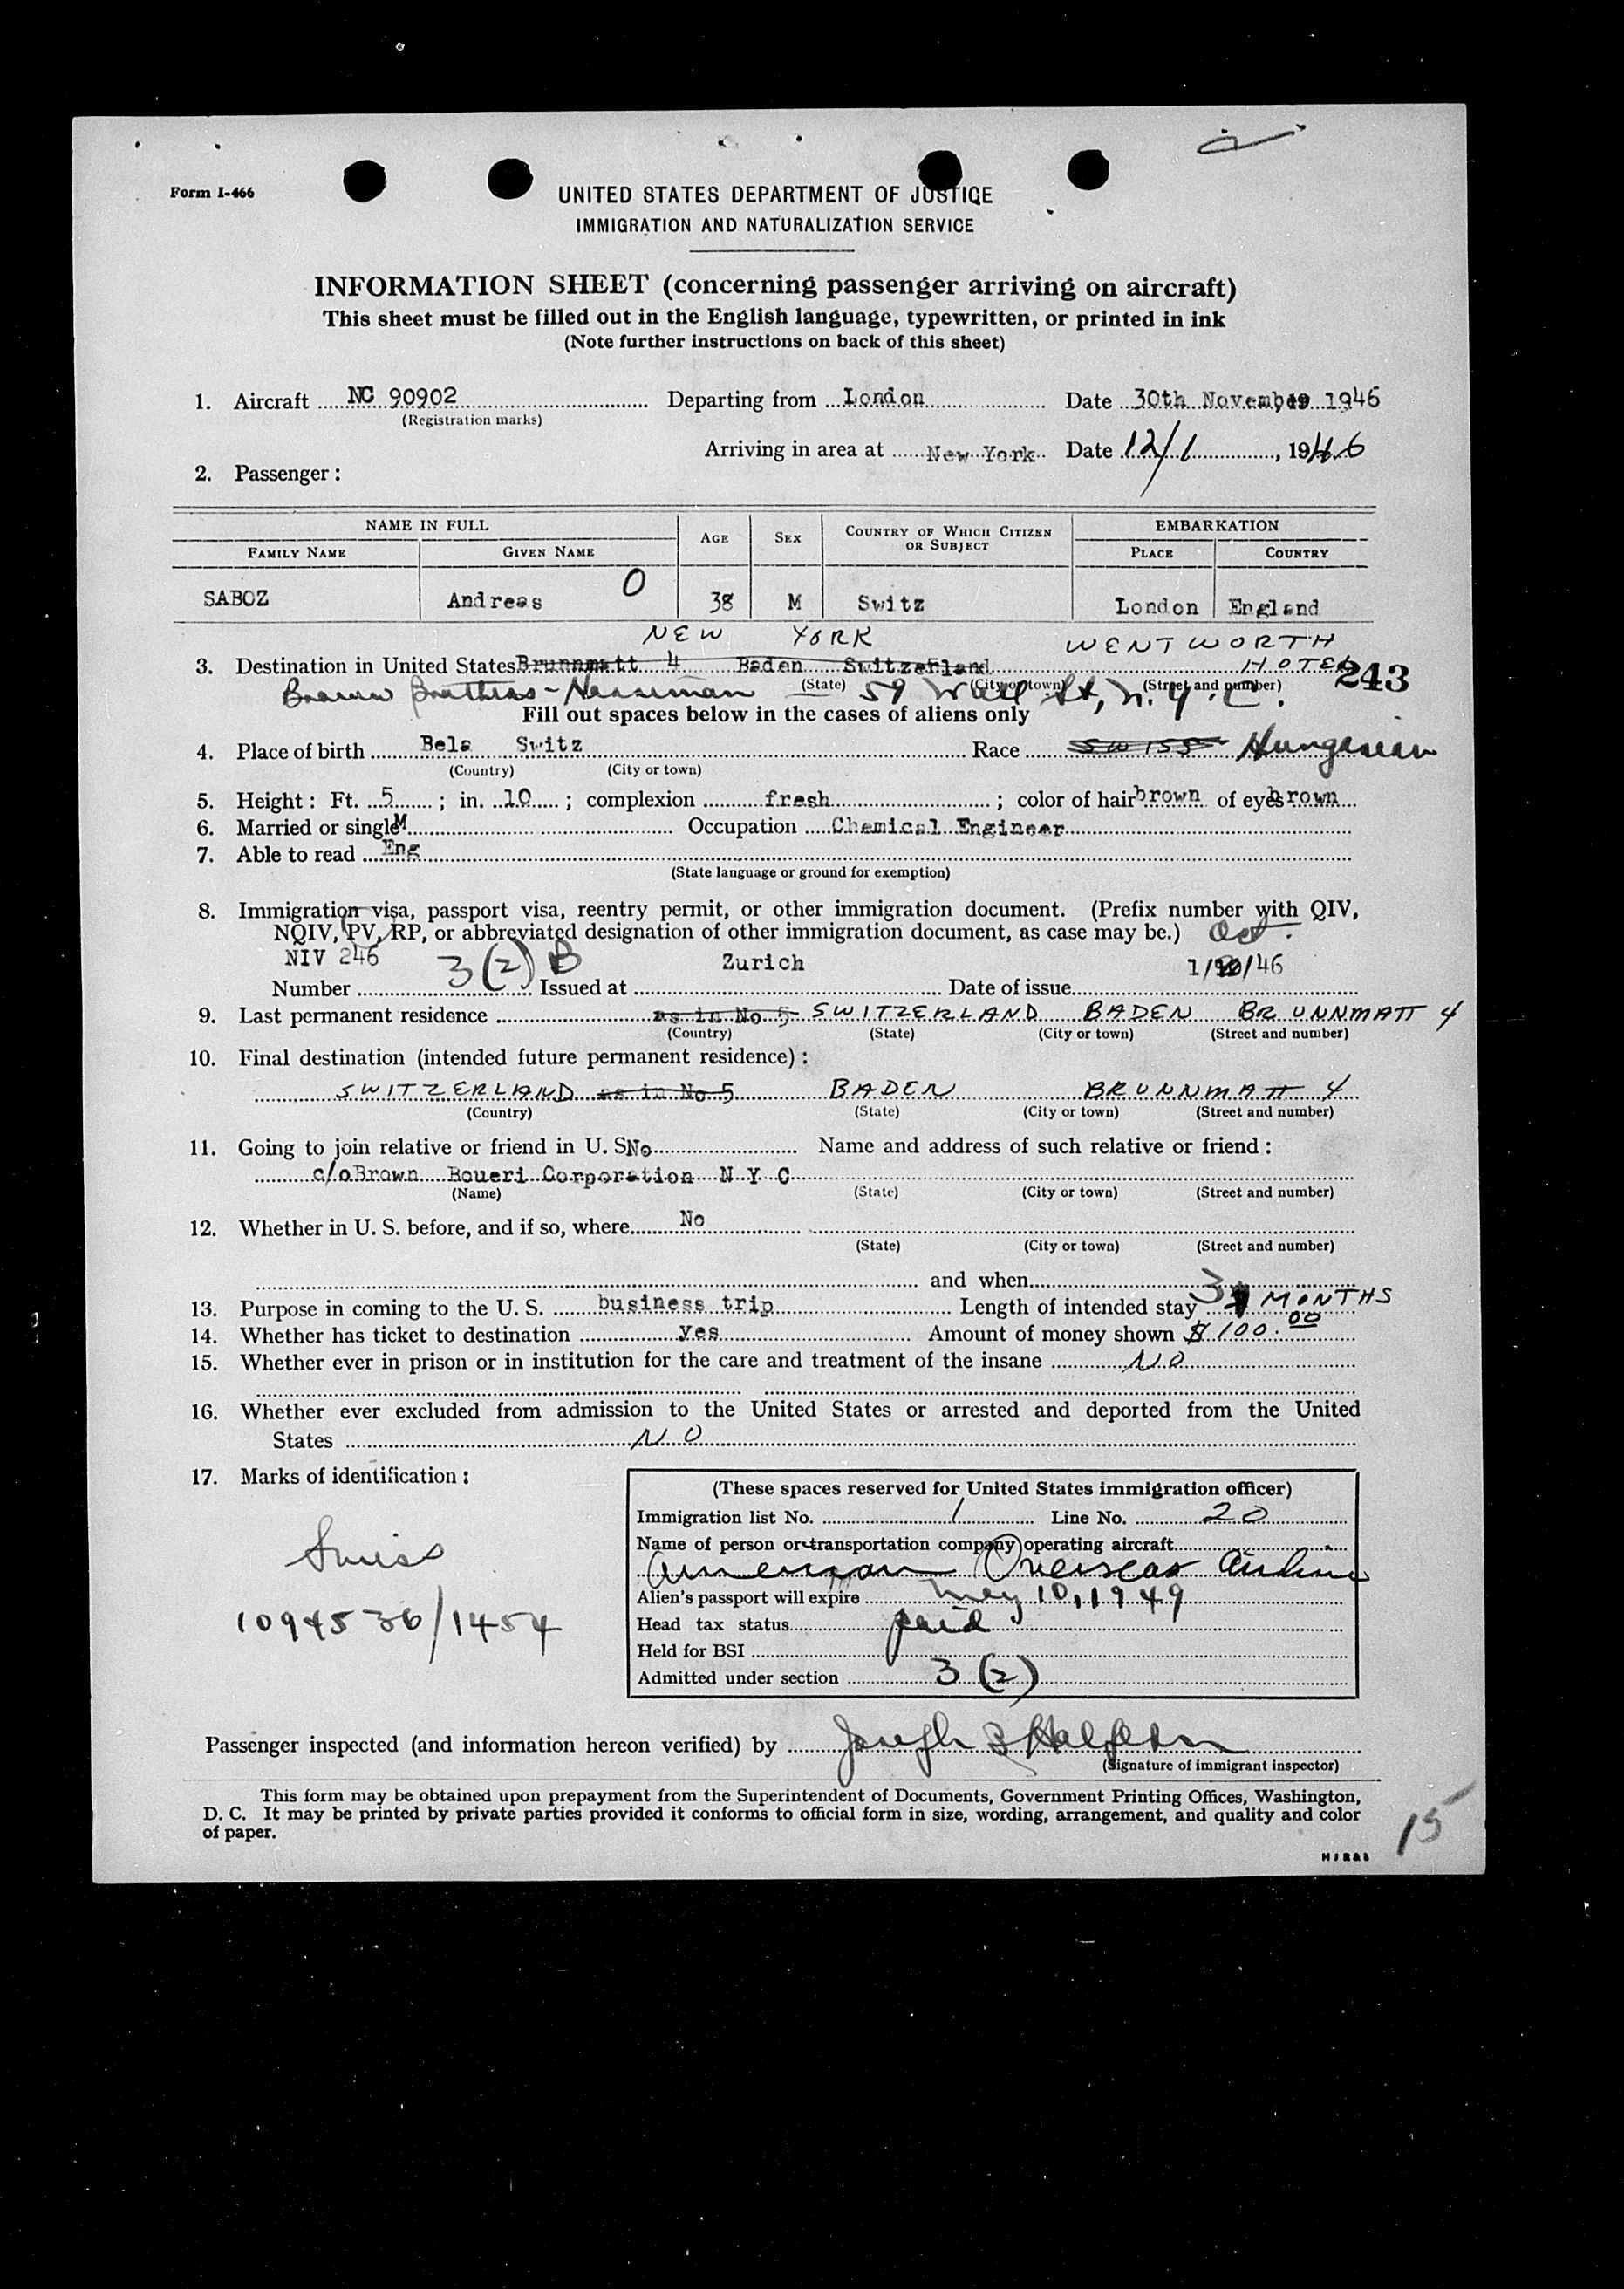 Form I-466
UNITED STATES DEPARTMENT OF JUSTICE
IMMIGRATION AND NATURALIZATION SERVICE
INFORMATION SHEET (concerning passenger arriving on aircraft)
This sheet must be filled out in the English language, typewritten, or printed in ink
(Note further instructions on back of this sheet)
1. Aircraft NC 90902 Departing from London Date 30th November, 19 1946
(Registration marks)
Arriving in area at New York Date 12/1, 1946
2. Passenger:
NAME IN FULL AGE SEX COUNTRY OF WHICH CITIZEN OR SUBJECT EMBARKATION
FAMILY NAME GIVEN NAME PLACE COUNTRY
SABOZ Andreas O 38 M Switz London England
NEW YORK WENTWORTH
3. Destination in United States Brunnmatt 4 Baden Switzerland HOTEL 243
(State) (City or town) (Street and number)
Brown Brothers - 59 Wall St, N.Y.C.
Fill out spaces below in the cases of aliens only
4. Place of birth Bela Switz Race SWISS Hungarian
(Country) (City or town)
5. Height: Ft. 5; in. 10; complexion fresh; color of hair brown of eyes brown
6. Married or single M Occupation Chemical Engineer
7. Able to read Eng
(State language or ground for exemption)
8. Immigration visa, passport visa, reentry permit, or other immigration document. (Prefix number with QIV,
NQIV, PV, RP, or abbreviated designation of other immigration document, as case may be.) Oct.
NIV 246 3(2) B Zurich
Number Issued at Date of issue 1/ /46
9. Last permanent residence as in No 5 SWITZERLAND BADEN BRUNNMATT 4
(Country) (State) (City or town) (Street and number)
10. Final destination (intended future permanent residence):
SWITZERLAND as in No 5 BADEN BRUNNMATT 4
(Country) (State) (City or town) (Street and number)
11. Going to join relative or friend in U. S. No Name and address of such relative or friend:
c/o Brown Boueri Corporation N Y C
(Name) (State) (City or town) (Street and number)
12. Whether in U. S. before, and if so, where No
(State) (City or town) (Street and number)
and when
13. Purpose in coming to the U. S. business trip Length of intended stay 3 MONTHS
14. Whether has ticket to destination yes Amount of money shown $ 100.00
15. Whether ever in prison or in institution for the care and treatment of the insane NO
16. Whether ever excluded from admission to the United States or arrested and deported from the United
States NO
17. Marks of identification:
Swiss
1094536/1454
(These spaces reserved for United States immigration officer)
Immigration list No. 1 Line No. 20
Name of person or transportation company operating aircraft
American Overseas Airline
Alien's passport will expire May 10, 1949
Head tax status paid
Held for BSI
Admitted under section 3(2)
Passenger inspected (and information hereon verified) by Joseph
(Signature of immigrant inspector)
This form may be obtained upon prepayment from the Superintendent of Documents, Government Printing Offices, Washington,
D. C. It may be printed by private parties provided it conforms to official form in size, wording, arrangement, and quality and color
of paper.
15